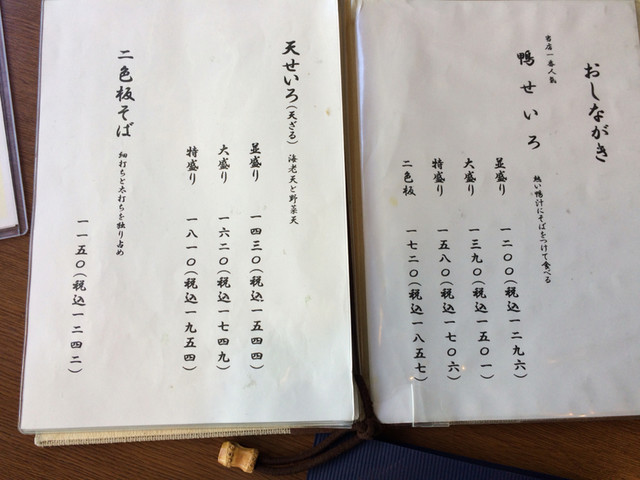 おしながき
当店一番人気
鴨せいろ
熱い鴨汁にそばをつけて食べる
並盛り 一二〇〇(税込一二九六)
大盛り 一三九〇(税込一五〇一)
特盛り 一五八〇(税込一七〇六)
二色板 一七二〇(税込一八五七)
天せいろ(天ざる) 海老天と野菜天
並盛り 一四三〇(税込一五四四)
大盛り 一六二〇(税込一七四九)
特盛り 一八一〇(税込一九五四)
二色板そば 細打ちと太打ちを独り占め
一一五〇(税込一二四二)